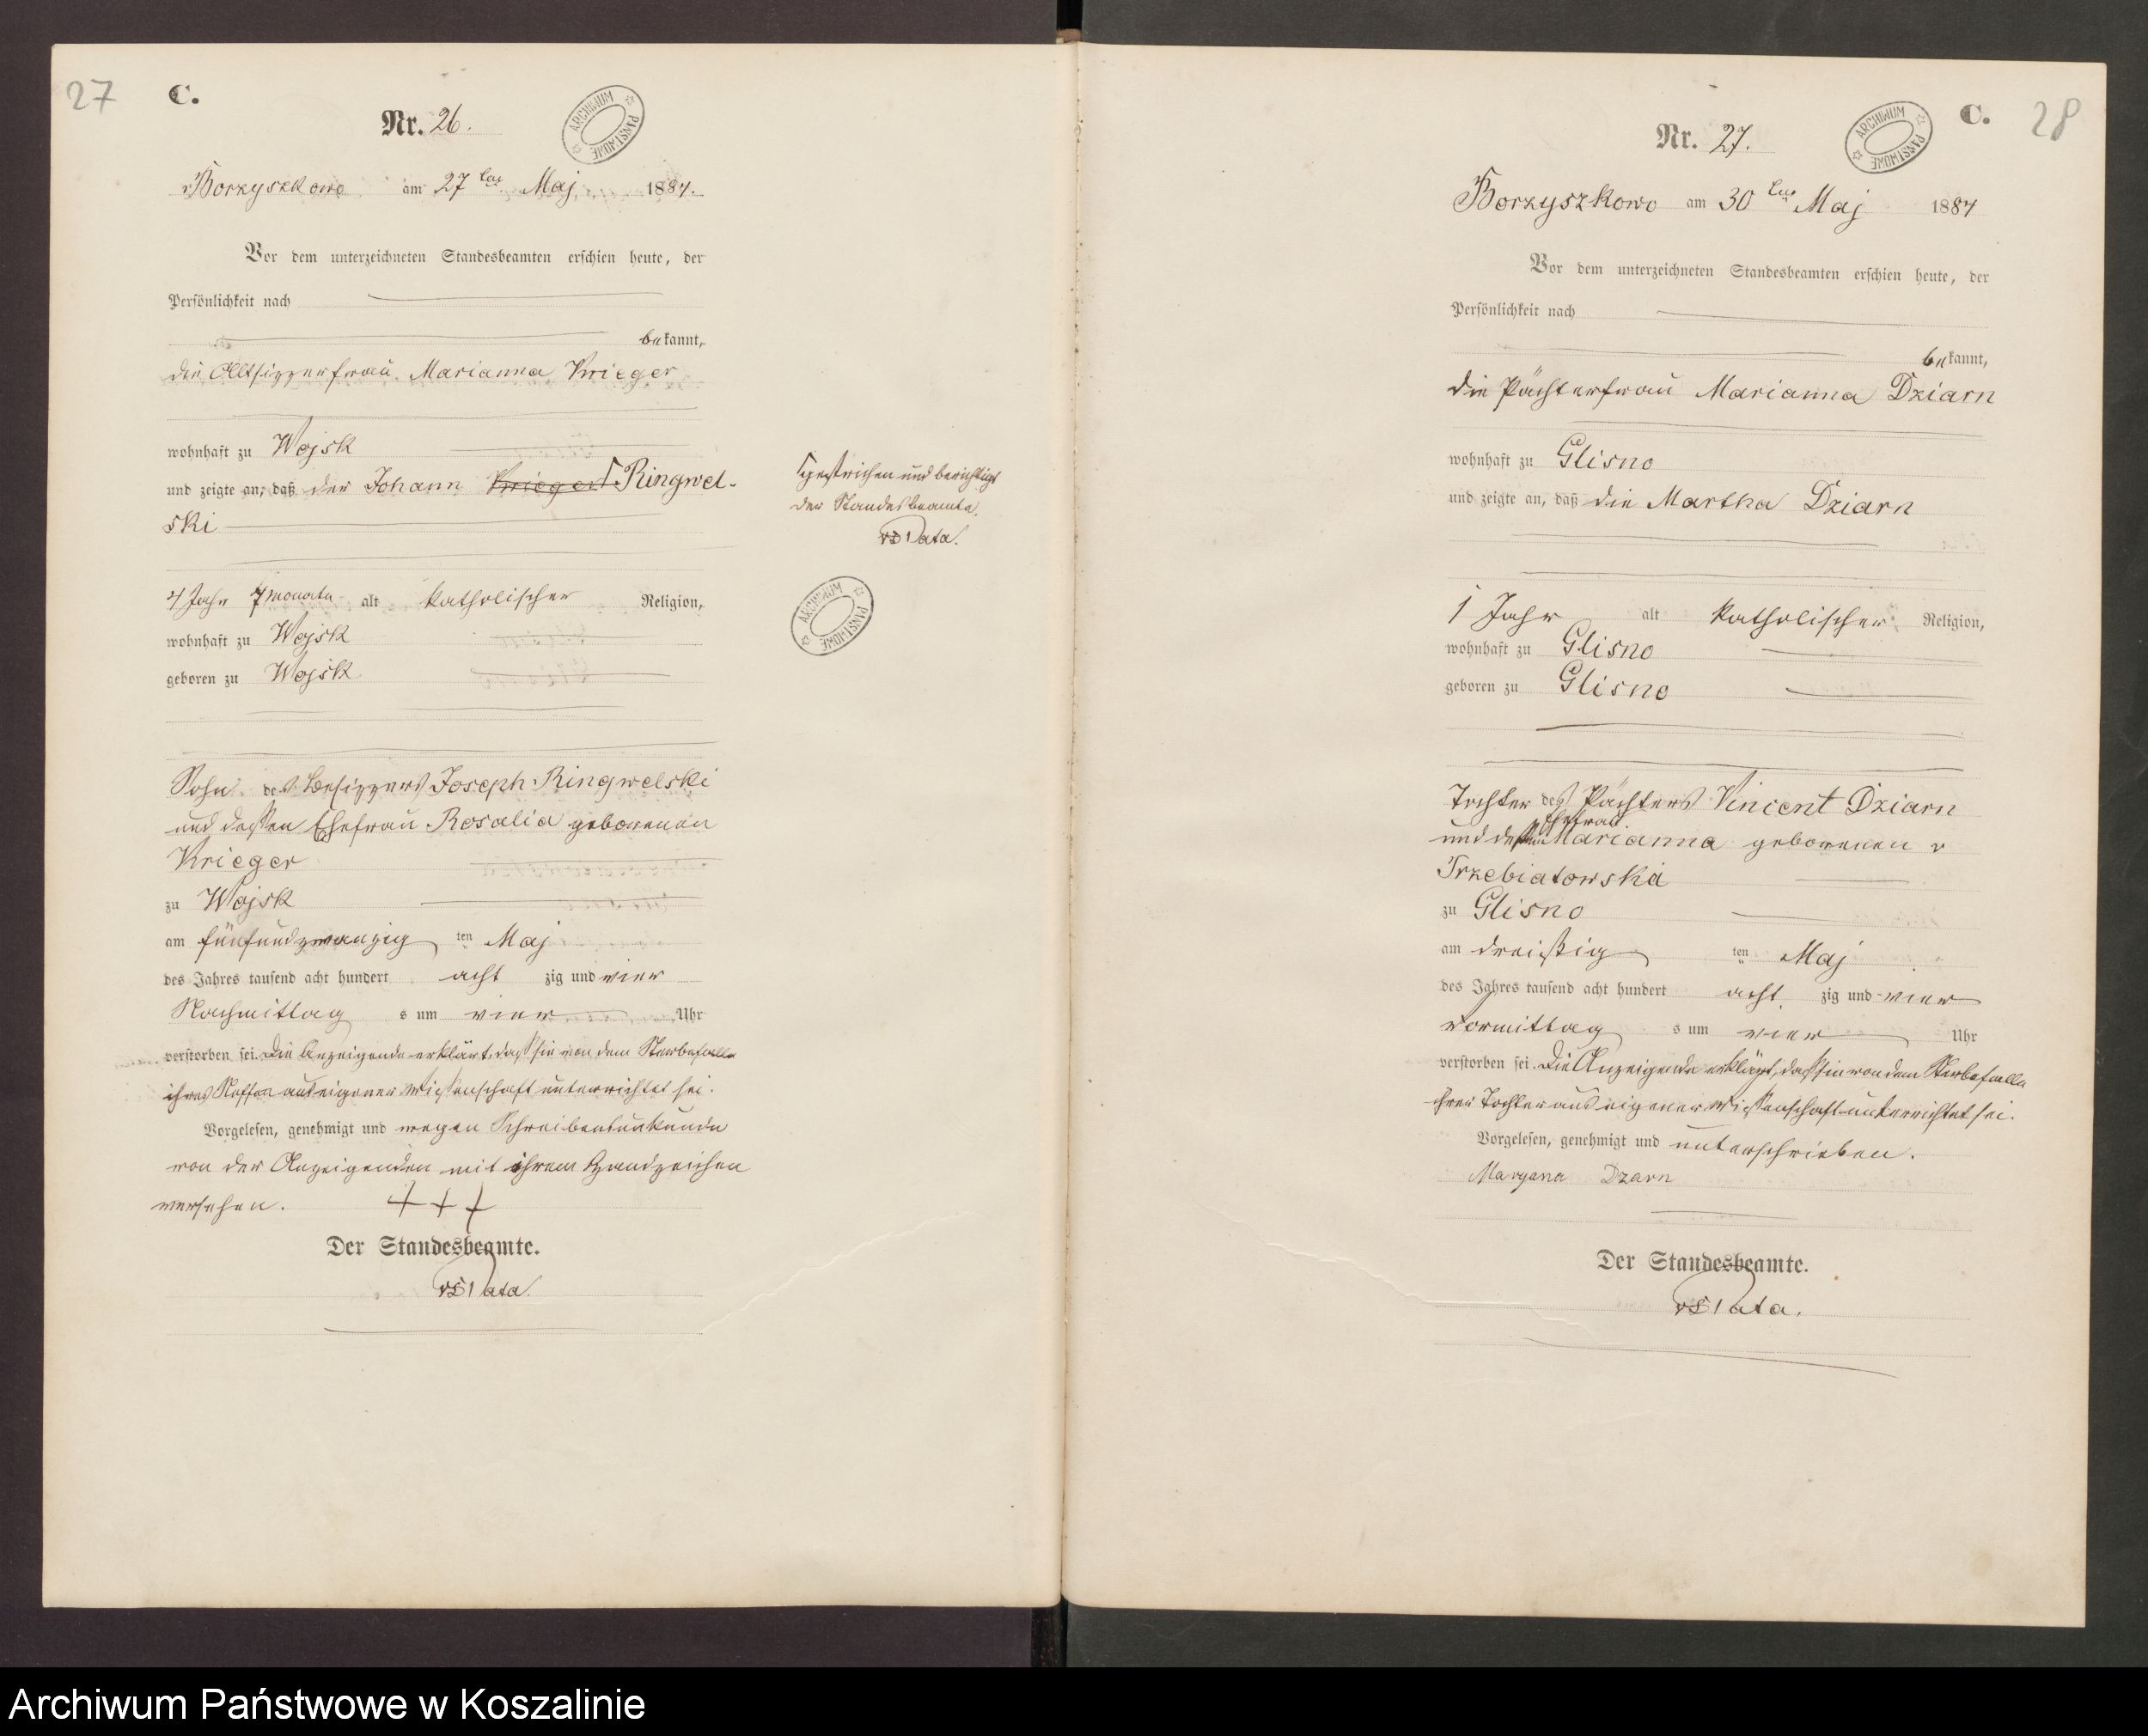 27
C.
Nr. 26.
ARCHIWUM PAŃSTWOWE
Borzyszkowo am 27ten Maj 1884.
Vor dem unterzeichneten Standesbeamten erschien heute, der
Persönlichkeit nach
bekannt,
die Altsitzerfrau Marianna Krieger
wohnhaft zu Wojsk
und zeigte an, daß der Johann Krieger Ringwel-
ski
4 Jahr 7 Monate alt katholischer Religion,
wohnhaft zu Wojsk
geboren zu Wojsk
Sohn des Besitzers Joseph Ringwelski
und dessen Ehefrau Rosalia geborenen
Krieger
zu Wojsk
am fünfundzwanzigten Maj
des Jahres tausend acht hundert achtzig und vier
Nachmittags um vier Uhr
verstorben sei. Die Anzeigende erklärt, daß sie von dem Sterbefalle
ihres Neffen aus eigener Wissenschaft unterrichtet sei.
Vorgelesen, genehmigt und wegen Schreibensunkunde
von der Anzeigenden mit ihrem Handzeichen
versehen. + + +
Der Standesbeamte.
Data.
gestrichen und berichtigt
Der Standesbeamte
Data.
ARCHIWUM PAŃSTWOWE
C. 28
Nr. 27.
ARCHIWUM PAŃSTWOWE
Borzyszkowo am 30ten Maj 1884
Vor dem unterzeichneten Standesbeamten erschien heute, der
Persönlichkeit nach
bekannt,
die Pächterfrau Marianna Dziarn
wohnhaft zu Glisno
und zeigte an, daß die Martha Dziarn
1 Jahr alt katholischer Religion,
wohnhaft zu Glisno
geboren zu Glisno
Tochter des Pächters Vincent Dziarn
und dessen Ehefrau Marianna geborenen
Trzebiatowska
zu Glisno
am dreißigten Maj
des Jahres tausend acht hundert achtzig und vier
Vormittags um vier Uhr
verstorben sei. Die Anzeigende erklärt, daß sie von dem Sterbefalle
ihrer Tochter aus eigener Wissenschaft unterrichtet sei.
Vorgelesen, genehmigt und unterschrieben.
Maryana Dzarn
Der Standesbeamte.
Data.
Archiwum Państwowe w Koszalinie